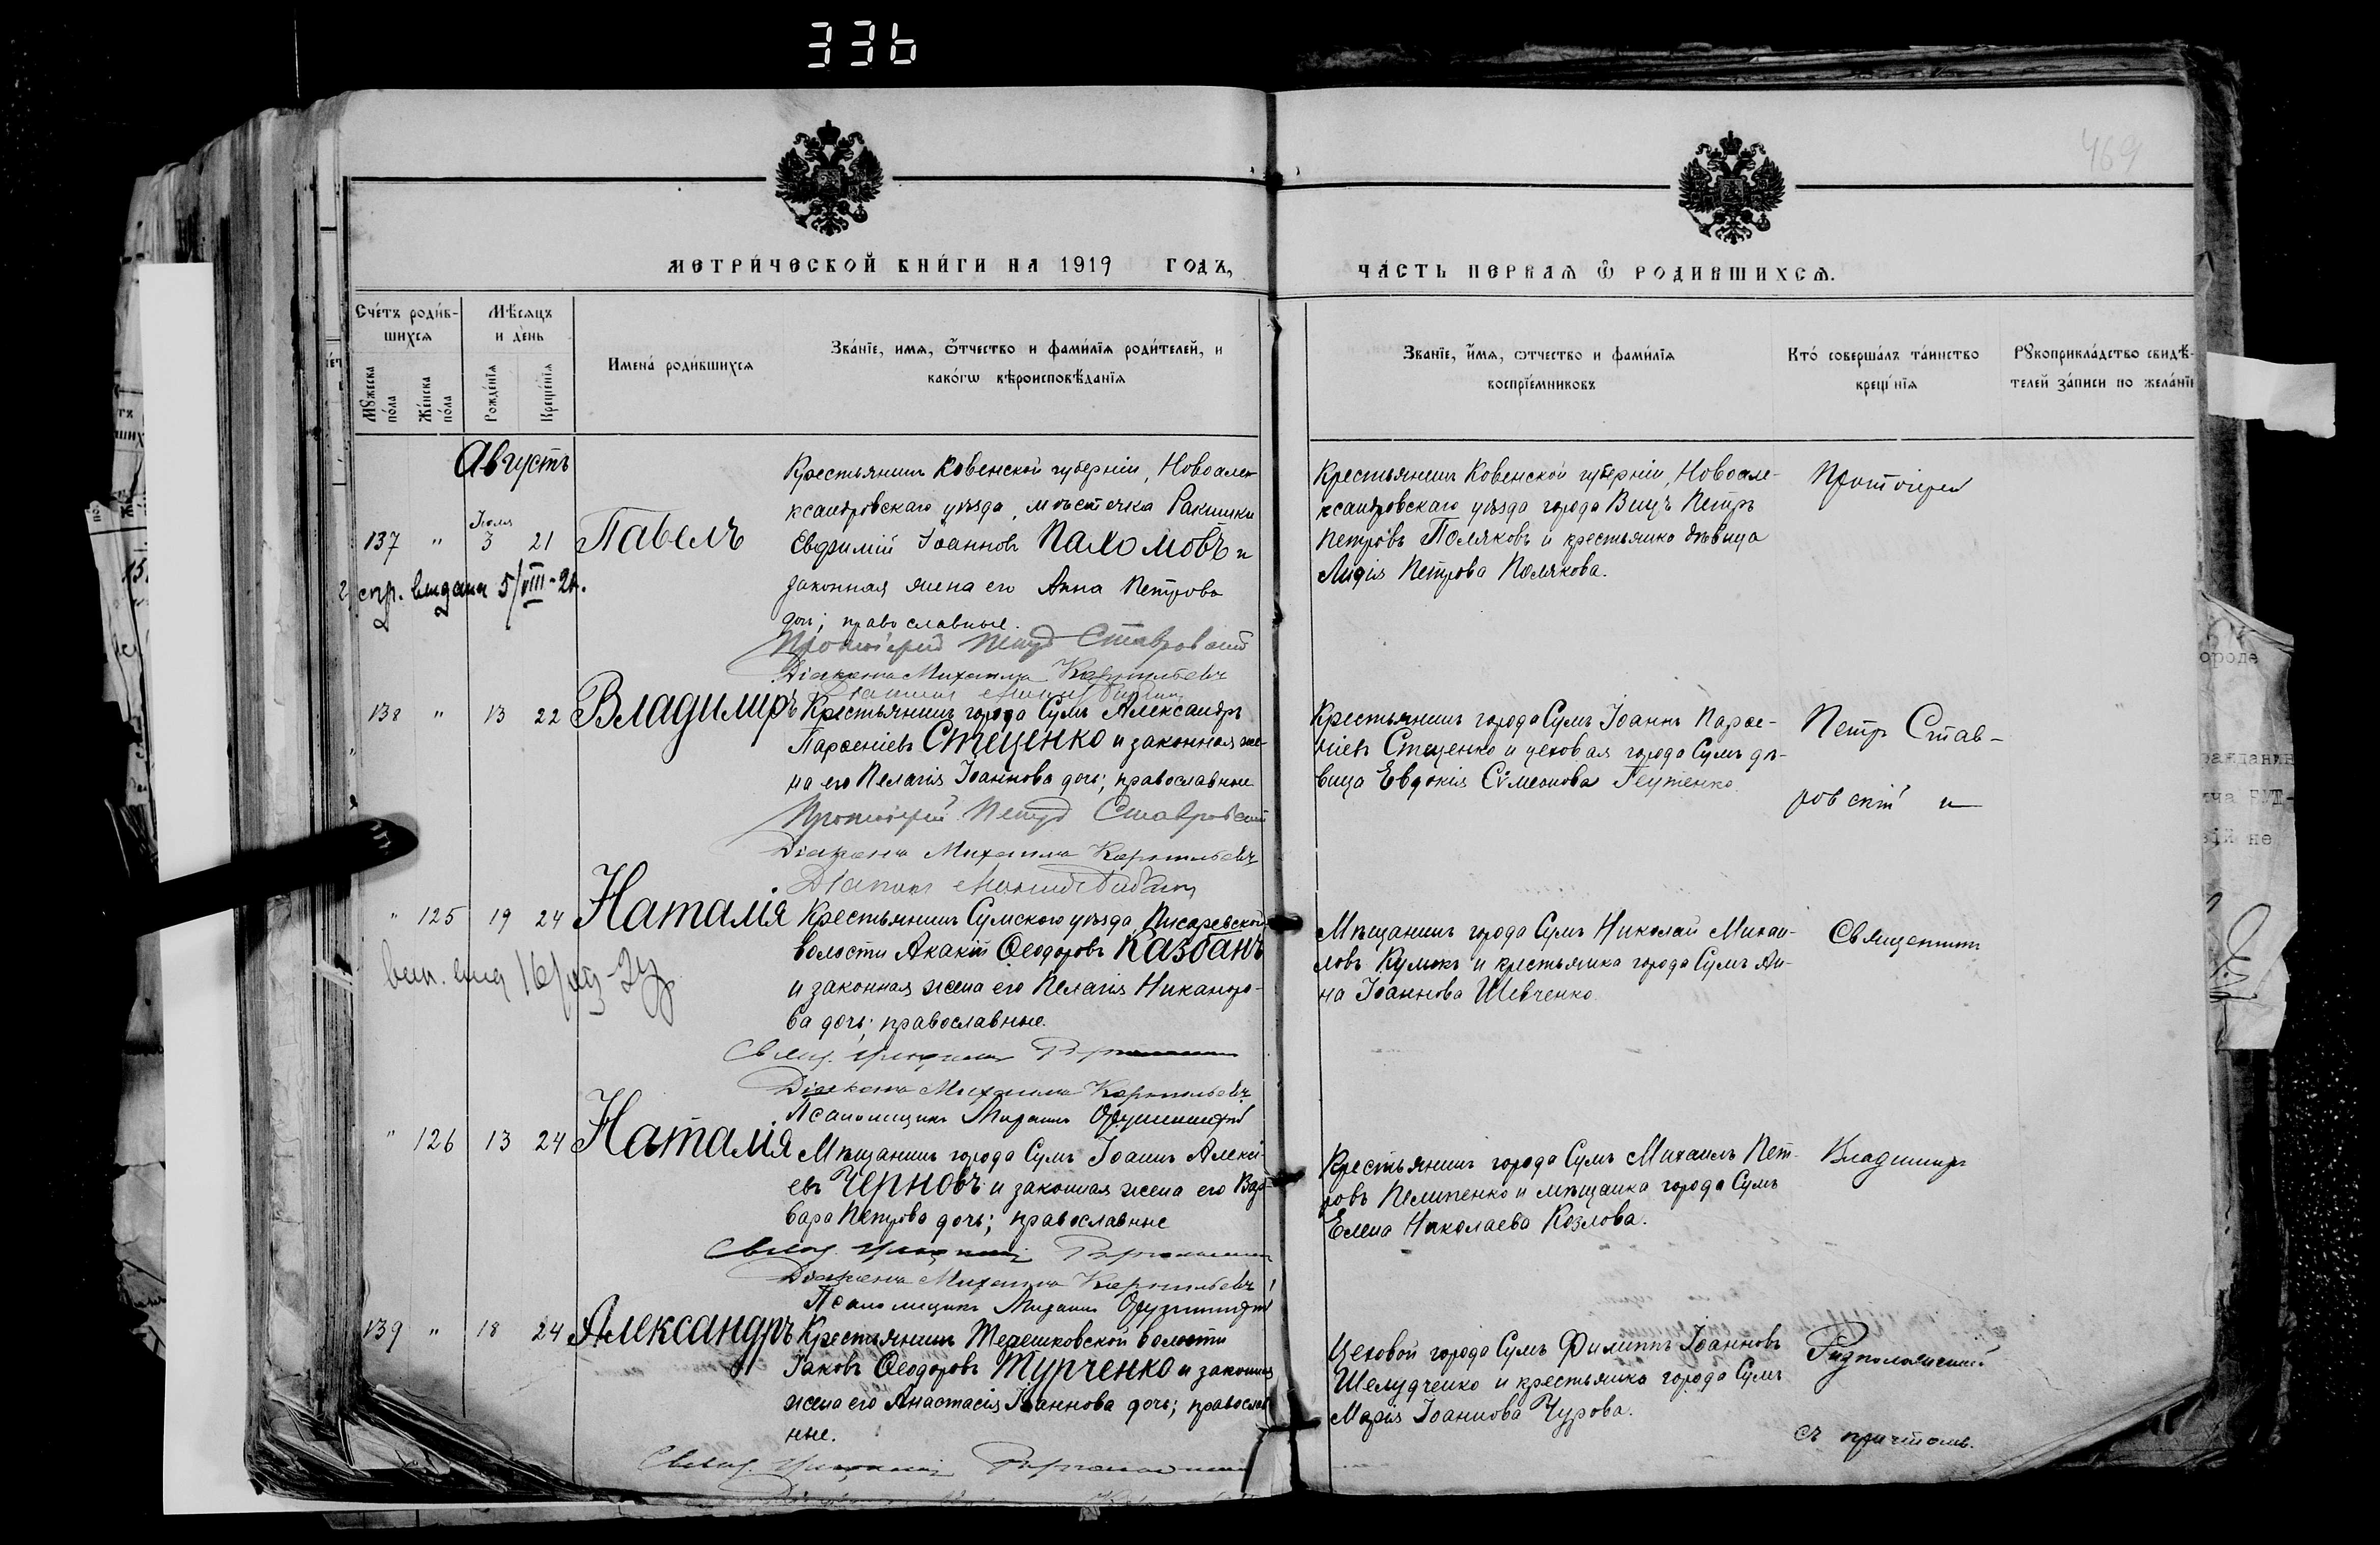 336
469
МЕТРИ́ЧЕСКОЙ КНИ́ГИ НА 1919 ГОДЪ,
ЧА́СТЬ ПЕРВАѦ Ѿ РОДИВШИХСѦ.
Сче́тъ роди́в-
шихсѧ
Мѣ́сѧцъ
и де́нь
Мꙋ́жеска по́ла
Же́нска по́ла
Рожде́нїѧ
Креще́нїѧ
Имена́ роди́вшихсѧ
Зва́нїе, имѧ, ѻ҆́тчество и фами́лїѧ роди́телей, и
како́гѡ вѣроисповѣ́данїѧ
Зва́нїе, и҆́мѧ, ѻтчество и фами́лїѧ
воспрїе́мниковъ
Кто́ соверша́лъ та́инство
креще́нїѧ
Рꙋкоприкла́дство свидѣ́-
телей за́писи по жела́нїю
Августъ
Іюля
137 " 3 21 Павелъ
Крестьянинъ Ковенской губерніи, Новоалек
ксандровскаго уѣзда, мѣстечка Ракишки
Евфимій Іоанновъ Пахомовъ и
законная жена его Анна Петрова
дочь; православные.
Протоіерей Петръ Ставровскій
Діаконъ Михаилъ
Крестьянинъ Ковенской губерніи, Новоале-
ксандровскаго уѣзда города Видзъ Петръ
Петровъ Поляковъ и крестьянка дѣвица
Лидія Петрова Полякова.
Протоіерей
спр. выдана 5/VIII-21.
138 " 13 22 Владимиръ
Крестьянинъ города Сумъ Александръ
Парѳеніевъ Стеценко и законная же-
на его Пелагія Іоаннова дочь; православные
Протоіерей Петръ Ставровскій
Діаконъ Михаилъ
Крестьянинъ города Сумъ Іоаннъ Парѳе-
ніевъ Стеценко и цеховая города Сумъ дѣ-
вица Евдокія Сѵмеонова
Петръ Став-
ровскій и
" 125 19 24 Наталія
Крестьянинъ Сумского уѣзда, Писаревской
волости Акакій Ѳеодоровъ Казбанъ
и законная жена его Пелагія Никандро-
ва дочь; православные.
Діаконъ Михаилъ
Псаломщикъ
Мѣщанинъ города Сумъ Николай Михаи-
ловъ Куликъ и крестьянка города Сумъ Ан-
на Іоаннова Шевченко
Священникъ
" 126 13 24 Наталія
Мѣщанинъ города Сумъ Іоаннъ Алексѣ-
евъ Черновъ и законная жена его Вар-
вара Петрова дочь; православные
Діаконъ Михаилъ
Псаломщикъ
Крестьянинъ города Сумъ Михаилъ Пет-
ровъ Пелипенко и мѣщанка города Сумъ
Елена Николаева Козлова.
Владимиръ
139 " 18 24 Александръ
Крестьянинъ Терешковской волости
Іаковъ Ѳеодоровъ Турченко и законная
жена его Анастасія Іоаннова дочь; православ
ные.
Цеховой города Сумъ Филиппъ Іоанновъ
Шелудченко и крестьянка города Сумъ
Марія Іоаннова Чурова.
съ причтомъ.